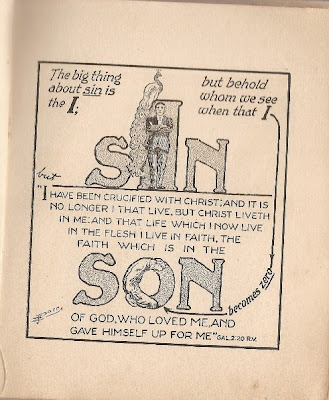 The big thing
about sin is
the I;
but behold
whom we see
when that I
SIN
but
"I HAVE BEEN CRUCIFIED WITH CHRIST; AND IT IS
NO LONGER I THAT LIVE, BUT CHRIST LIVETH
IN ME: AND THAT LIFE WHICH I NOW LIVE
IN THE FLESH I LIVE IN FAITH, THE
FAITH WHICH IS IN THE
SON
becomes zero
OF GOD, WHO LOVED ME, AND
GAVE HIMSELF UP FOR ME" GAL. 2:20 R.V.